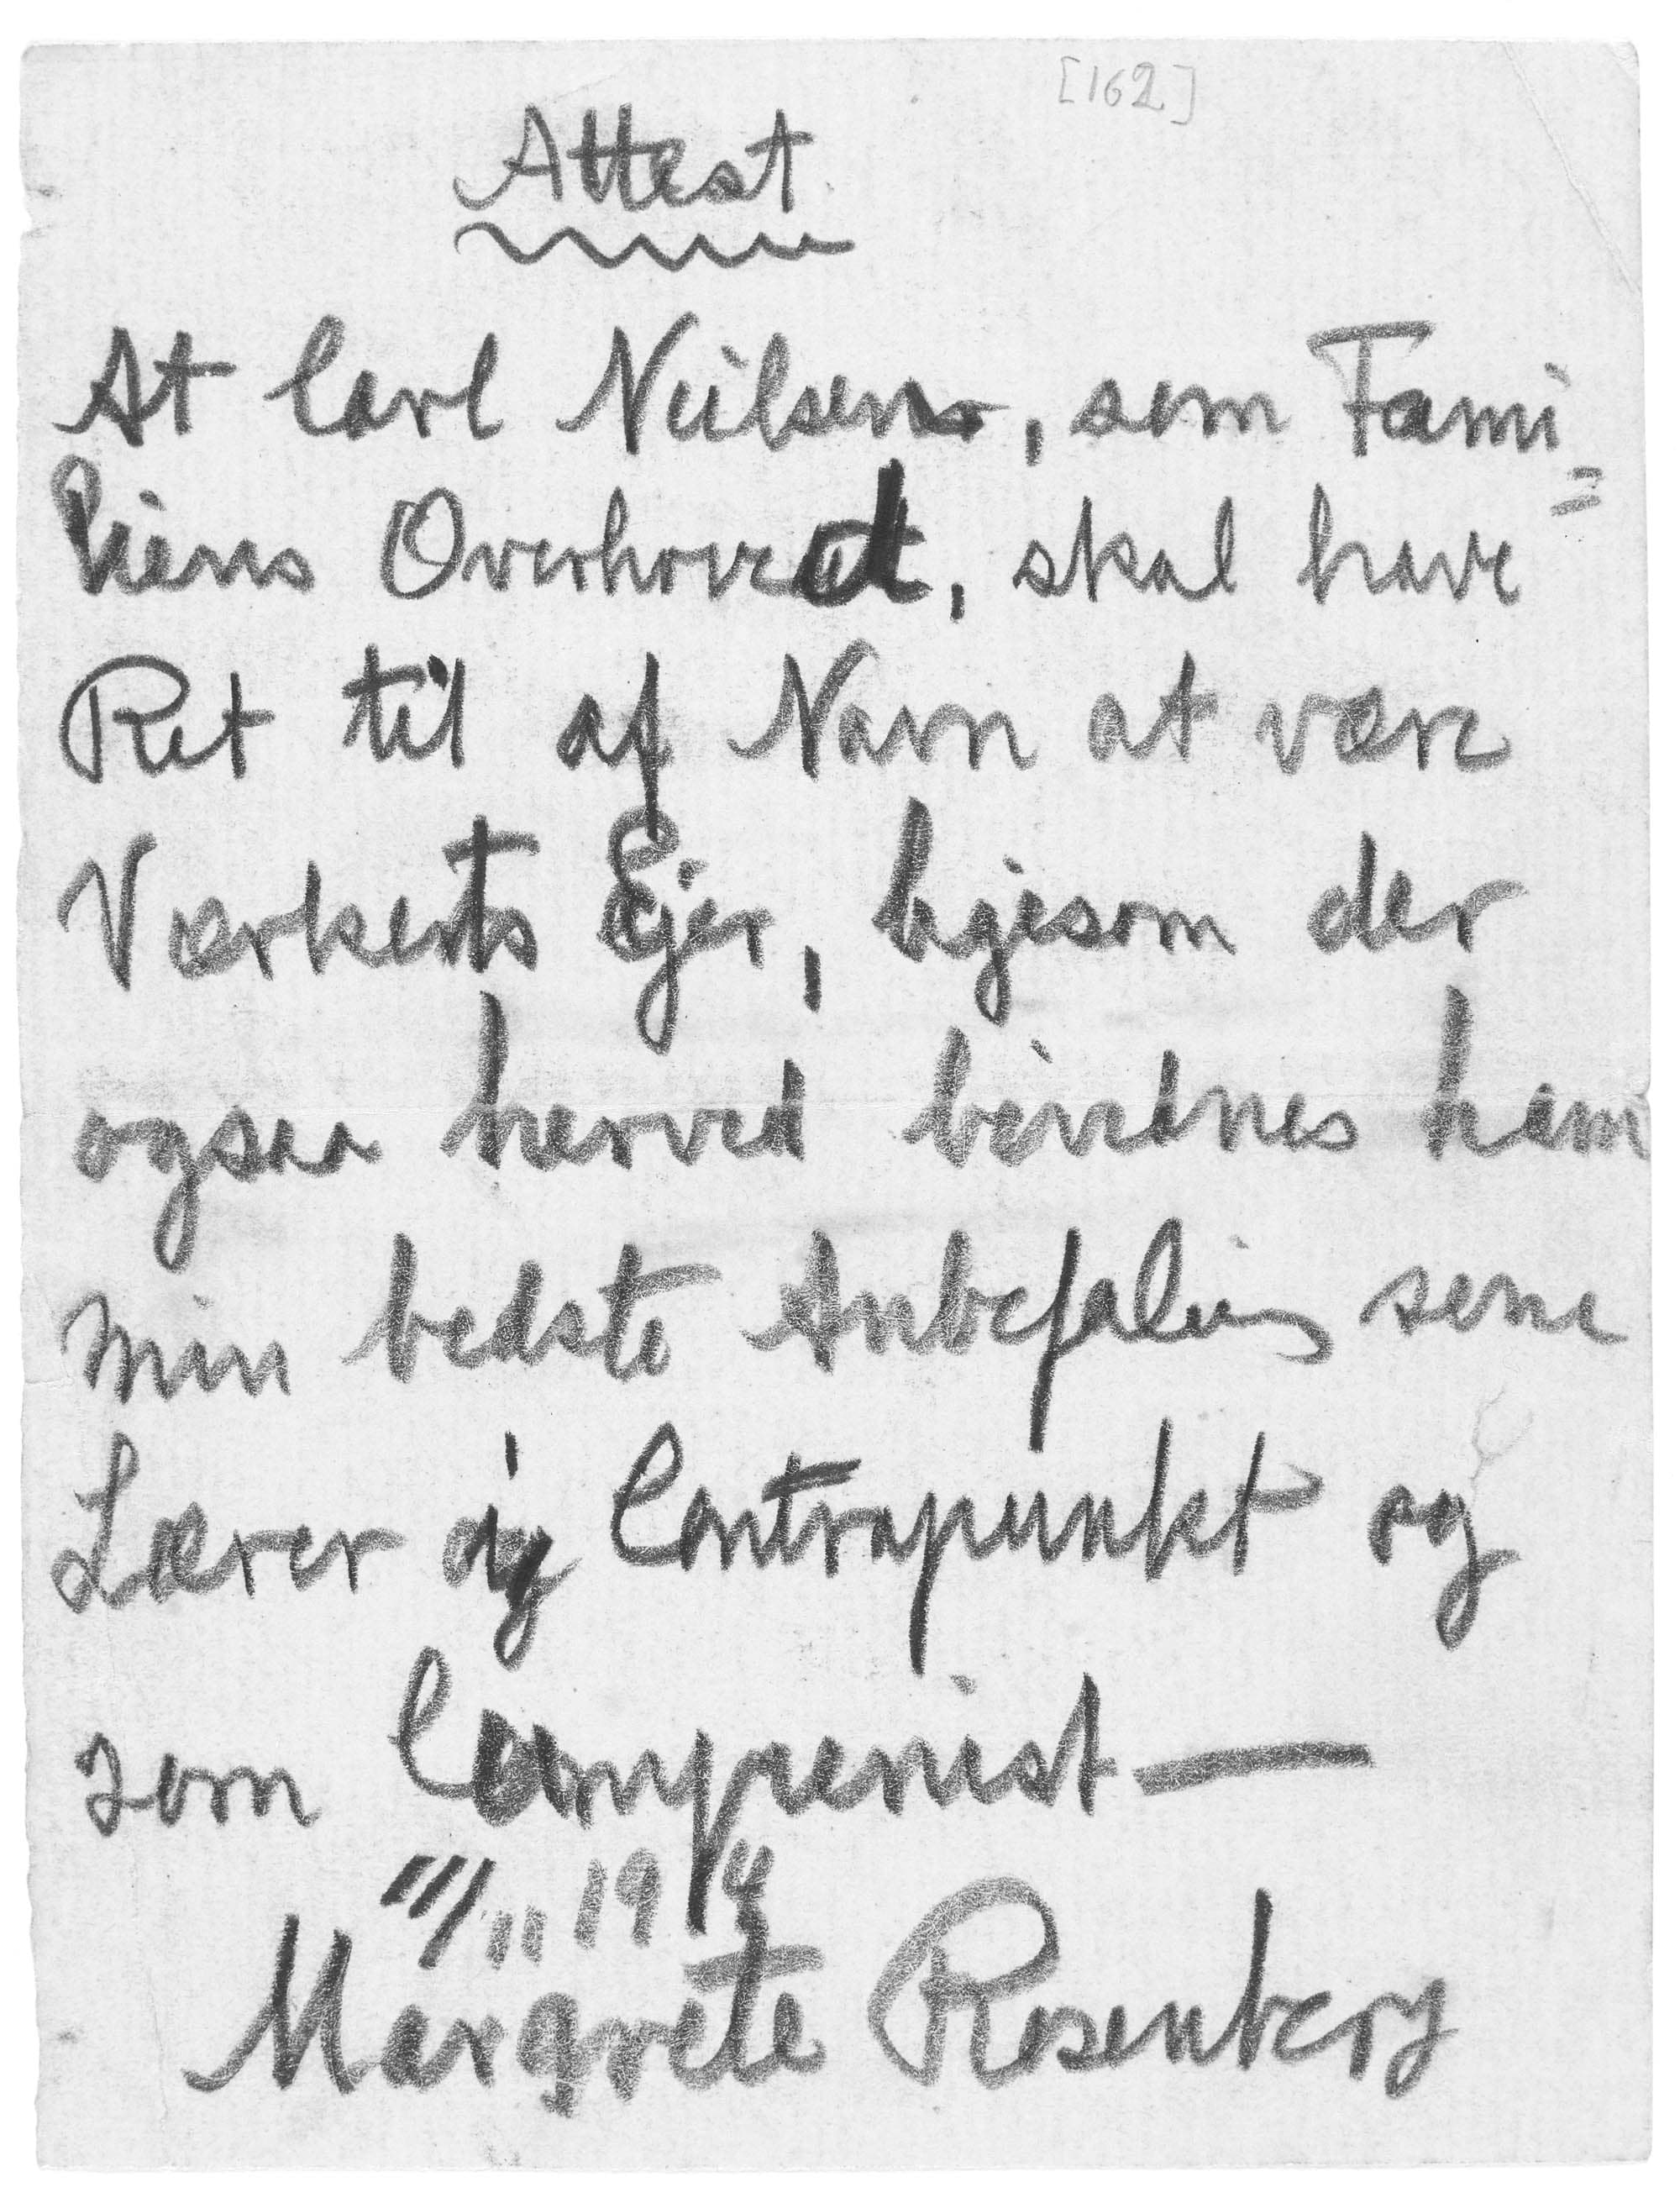 [162]
Attest.
At Carl Neilsen, som Fami=
liens Overhoved, skal have
Ret til af Navn at være
Værkets Ejer, ligesom der
ogsaa herved bevidnes ham
min bedste Anbefaling som
Lærer i Contrapunkt og
som Componist—
11/11 1914
Margrete Rosenberg